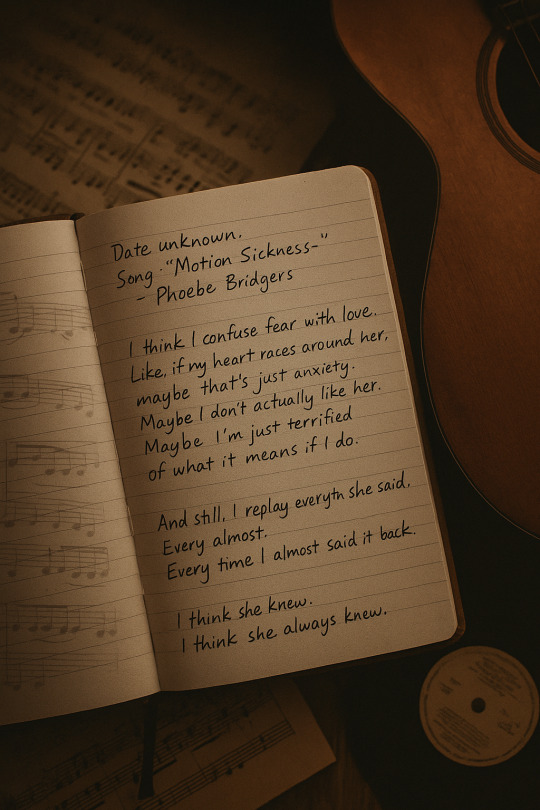 Date unknown.
Song · "Motion Sickness-"
- Phoebe Bridgers
I think I confuse fear with love.
Like, if my heart races around her,
maybe that's just anxiety.
Maybe I don't actually like her.
Maybe I'm just terrified
of what it means if I do.
And still, I replay everytn she said,
Every almost.
Every time I almost said it back.
I think she knew.
I think she always knew.